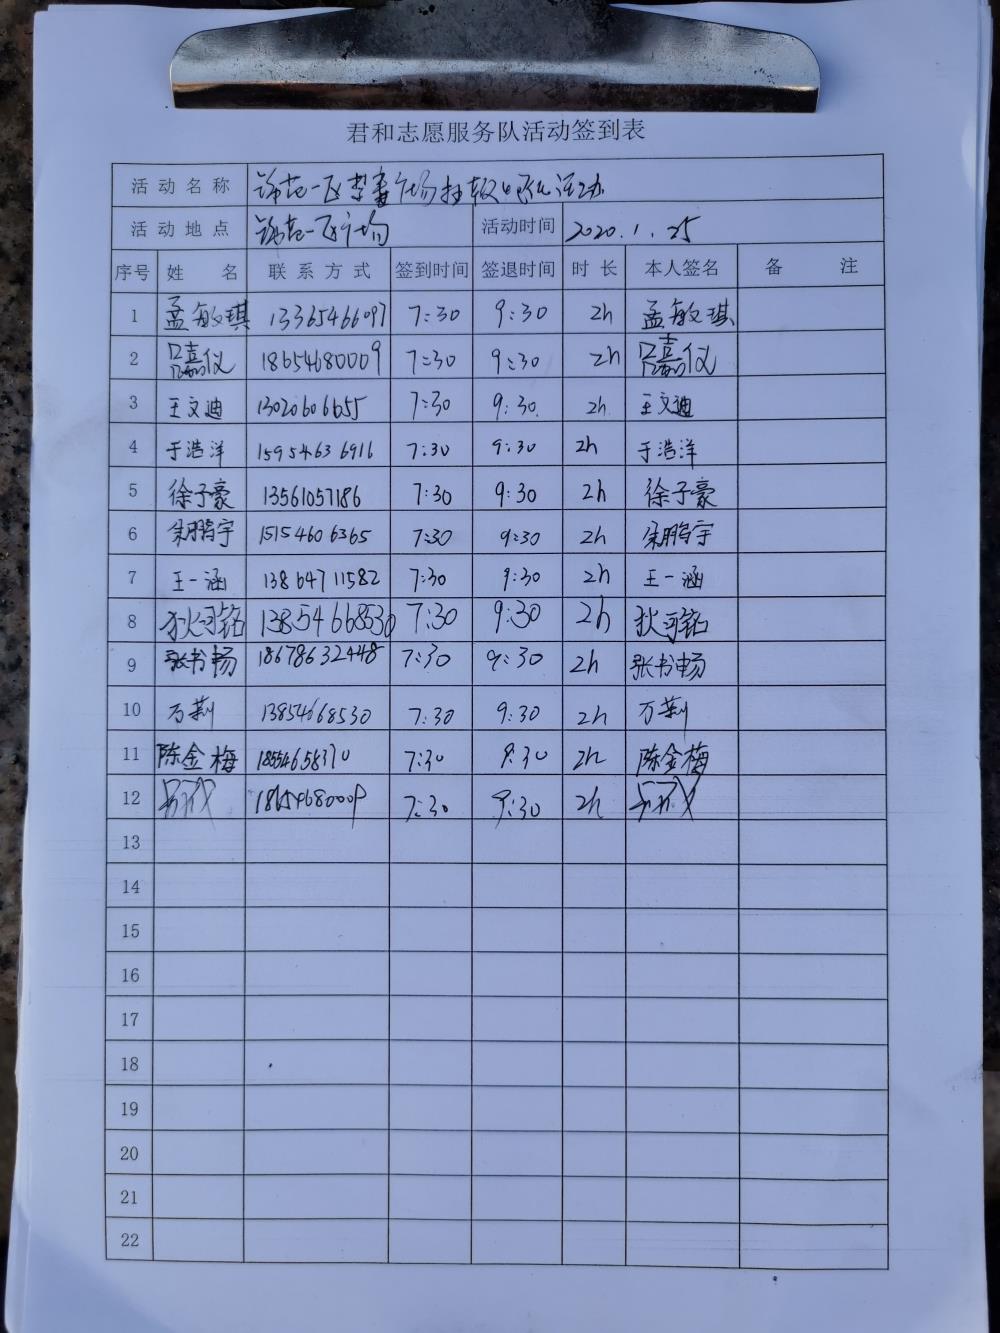 君和志愿服务队活动签到表
活动名称 锦苑一区 广场 活动
活动地点 锦苑一区广场 活动时间 2020.1.25
序号 姓名 联系方式 签到时间 签退时间 时长 本人签名 备注
1 孟敏琪 13365466097 7:30 9:30 2h 孟敏琪
2 吕嘉仪 18654680009 7:30 9:30 2h 吕嘉仪
3 王文迪 13020606655 7:30 9:30 2h 王文迪
4 于浩洋 15954636916 7:30 9:30 2h 于浩洋
5 徐子豪 13561057186 7:30 9:30 2h 徐子豪
6 朱鹏宇 15154606365 7:30 9:30 2h 朱鹏宇
7 王一涵 13864711582 7:30 9:30 2h 王一涵
8 狄可铭 13854668530 7:30 9:30 2h 狄可铭
9 张书畅 18678632448 7:30 9:30 2h 张书畅
10 万荆 13854668530 7:30 9:30 2h 万荆
11 陈金梅 18554658370 7:30 9:30 2h 陈金梅
12 18654680009 7:30 9:30 2h
13
14
15
16
17
18
19
20
21
22